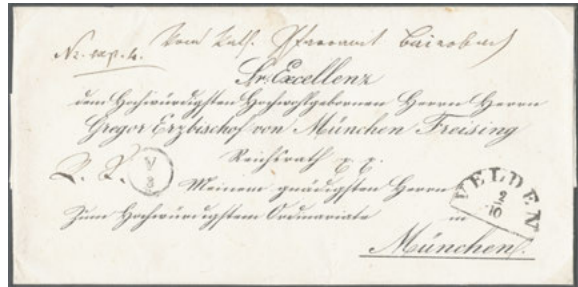 Vom kath. Pfarramt Baierbach
Nr. exp. 4.
Sr. Excellenz
dem Hochwürdigsten Hochwohlgebornen Herrn Herrn
Gregor Erzbischof von München Freising
Reichsrath p. p.
V
3
Meinem gnädigsten Herrn
VELDEN
2
10
Zum Hochwürdigstem Ordinariate in
München.